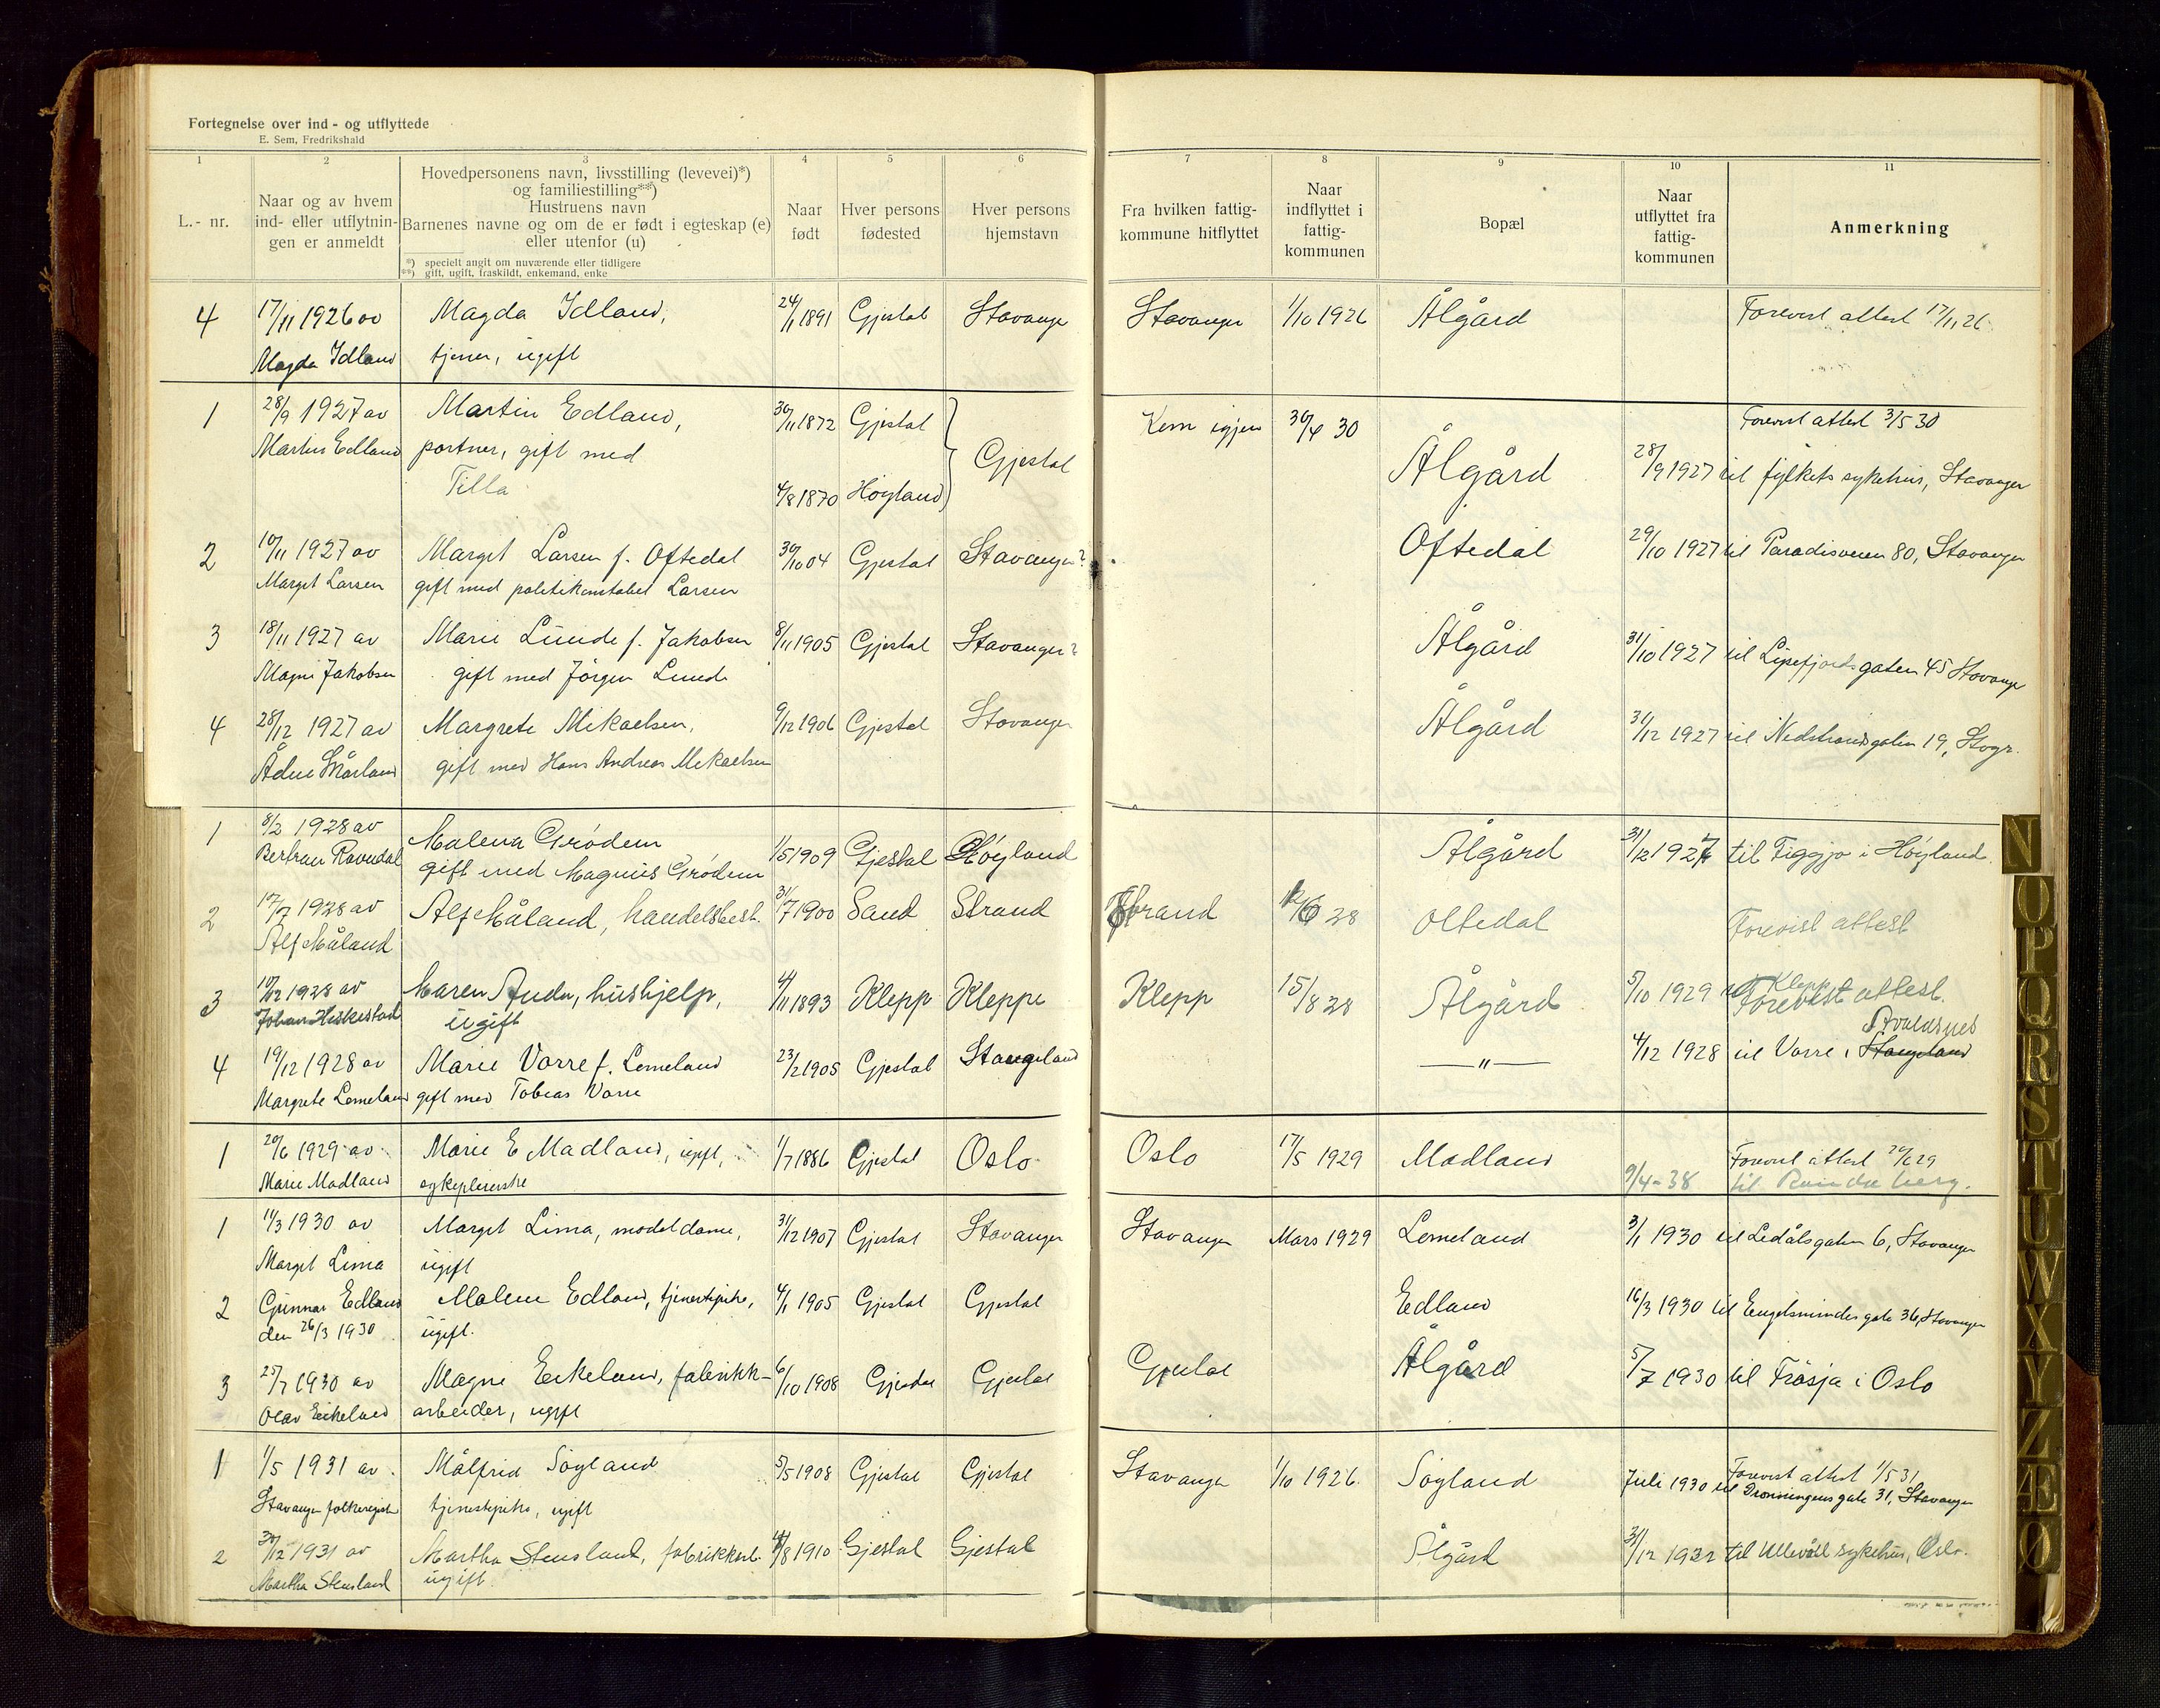 Fortegnelse over ind- og utflyttede
E. Sem, Fredrikshald
1 2 3 4 5 6 7 8 9 10 11
L.- nr.
Naar og av hvem ind- eller utflytnin- gen er anmeldt
Hovedpersonens navn, livsstilling (levevei)*)
og familiestilling**)
Hustruens navn
Barnenes navne og om de er født i egteskap (e)
eller utenfor (u)
*) specielt angit om nuværende eller tidligere
**) gift, ugift, fraskildt, enkemand, enke
Naar født
Hver persons fødested
Hver persons hjemstavn
Fra hvilken fattig- kommune hitflyttet
Naar indflyttet i fattig- kommunen
Bopæl
Naar utflyttet fra fattig- kommunen
Anmerkning
4 17/11 1926 av Magda Idland, 24/1 1891 Gjestal Stavanger Stavanger 1/10 1926 Ålgård Forevist attest 17/11 26
Magda Idland tjener, ugift
1 28/9 1927 av Martin Edland, 30/11 1872 Gjestal Kom igjen 30/4 30 Forevist attest 3/5 30
Martin Edland portner, gift med Gjestal Ålgård 28/9 1927 til fylkets sykehus, Stavanger
Tilla 4/8 1870 Høyland
2 10/11 1927 av Margit Larsen f. Oftedal 30/10 04 Gjestal Stavanger? Oftedal 29/10 1927 til Paradisveien 80, Stavanger
Margit Larsen gift med politikonstabel Larsen
3 18/11 1927 av Marie Lunde f. Jakobsen 8/11 1905 Gjestal Stavanger? Ålgård 31/10 1927 til Lysefjordsgaten 45 Stavanger
Magni Jakobsen gift med Jörgen Lunde
4 28/12 1927 av Margrete Mikaelsen, 9/12 1906 Gjestal Stavanger Ålgård 31/12 1927 til Nedstrandsgaten 19, Stvgr.
Ådne gift med Hans Andreas Mikaelsen
1 8/2 1928 av Malena Grødem 1/5 1909 Gjestal Høyland Ålgård 31/12 1927 til Figgjo i Høyland.
Bertran Ravndal gift med Magnus Grødem
2 17/7 1928 av Alf Måland, handelsbest. 31/7 1900 Sand Strand Strand 28 Oltedal Forevist attest
Alf Måland
3 1928 av Maren Anda, hushjelp, 4/11 1893 Klepp Kleppe Klepp 15/8 28 Ålgård 5/10 1929 til Klepp
Forevist attest.
Johan Hiskestad ugift
Avaldsnes
4 19/12 1928 av Marie Vorre f. Lomeland 23/2 1905 Gjestal Stangeland —"— 4/12 1928 til Vorre i Stangeland
Margrete Lomeland gift med Tobias Vorre
1 20/6 1929 av Marie E Madland, ugift, 1/7 1886 Gjestal Oslo Oslo 17/5 1929 Madland Forevist attest 20/6 29
Marie Madland sykepleierske 9/4-38 til Randaberg.
1 11/3 1930 av Margit Lima, modeldame, 31/12 1907 Gjestal Stavanger Stavanger Mars 1929 Lomeland 3/1 1930 til Ledålsgaten 6, Stavanger
Margit Lima ugift
2 Gunnar Edland Malene Edland, tjenestepike, 4/1 1905 Gjestal Gjestal Edland 16/3 1930 til Engelsmindes gate 36, Stavanger
den 26/3 1930 ugift.
3 25/7 1930 av Magni Eikeland, fabrikk- 6/10 1908 Gjestal Gjestal Gjestal Ålgård 5/7 1930 til Frøsja i Oslo
Olav Eikeland arbeider, ugift
1 1/5 1931 av Målfrid Søyland 5/5 1908 Gjestal Gjestal Stavanger 1/10 1926. Søyland Juli 1930 Forevist attest 1/5 31
Stavanger folkeregister tjenestepike, ugift til Dronningens gate 31, Stavanger
2 30/12 1931 av Martha Stensland, fabrikkarb. 8 1910 Gjestal Gjestal Ålgård 31/12 1931 til Ullevåll sykehus, Oslo.
Martha Stensland ugift.
N
O
P
Q
R
S
T
U
W
X
Y
Z
Æ
Ø